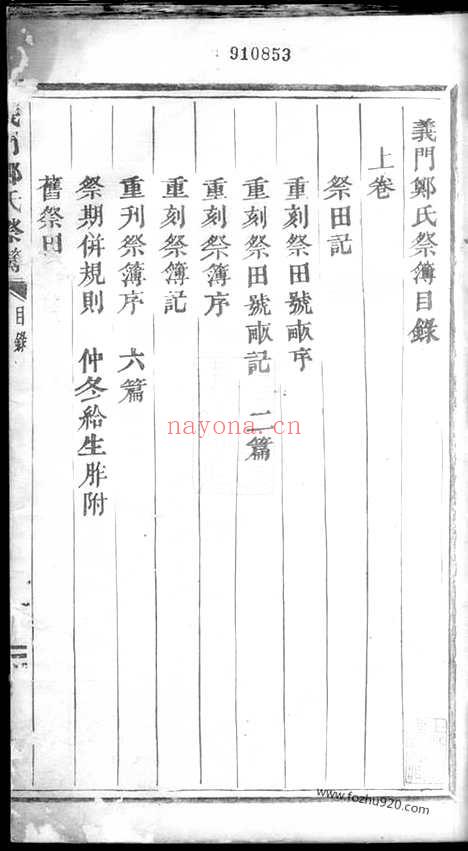 910853
義門鄭氏祭簿目錄
上卷
祭田記
重刻祭田號畝序
重刻祭田號畝記 二篇
重刻祭簿序
重刻祭簿記
重刊祭簿序 六篇
祭期併規則 仲冬給生胙附
舊祭田
義門鄭氏祭簿
目錄
nayona.cn
www.fozhu920.com